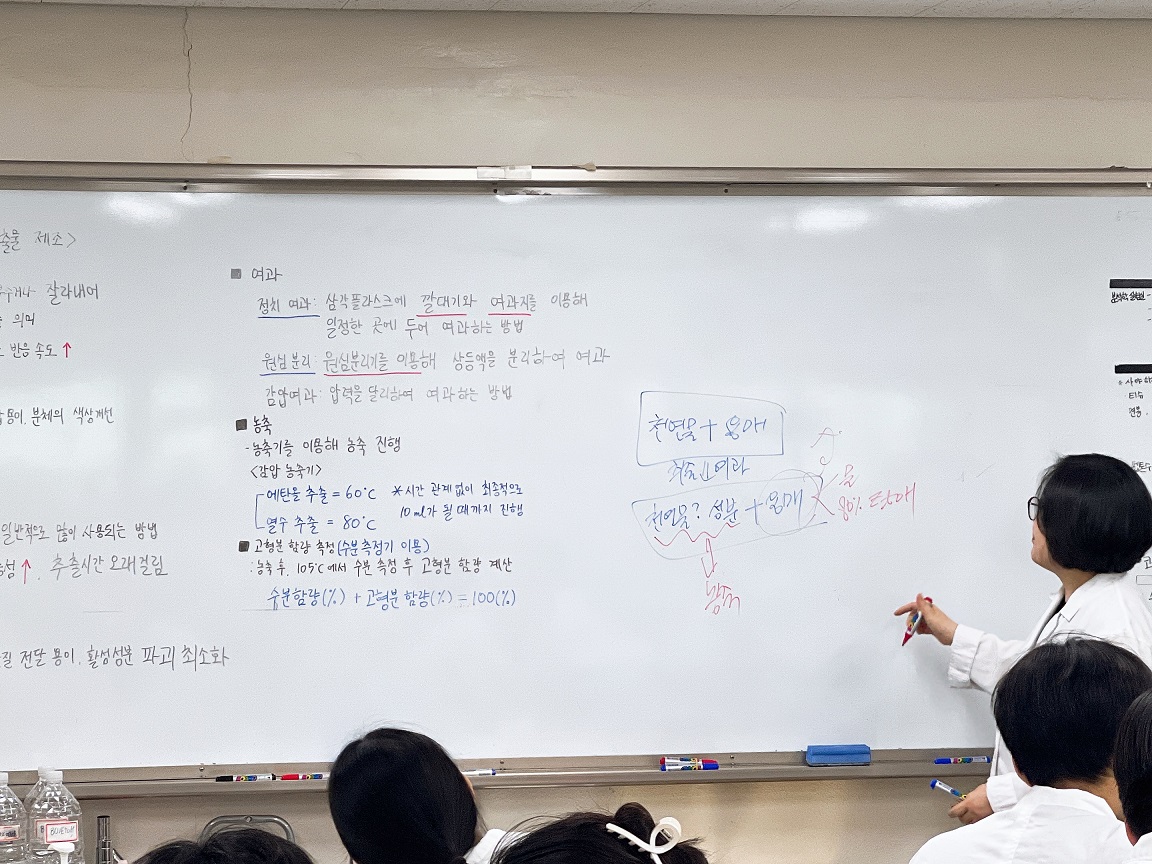 제조>
잘라내어
의미
반응 속도 ↑
용이, 분체의 색상개선
일반적으로 많이 사용되는 방법
↑, 추출시간 오래걸림
전달 용이, 활성성분 파괴 최소화
■ 여과
정치 여과: 삼각플라스크에 깔대기와 여과지를 이용해
일정한 곳에 두어 여과하는 방법
원심 분리: 원심분리기를 이용해 상등액을 분리하여 여과
감압여과: 압력을 달리하여 여과하는 방법
■ 농축
- 농축기를 이용해 농축 진행
<감압 농축기>
에탄올 추출 = 60°C
열수 추출 = 80°C
* 시간 관계없이 최종적으로
10 ml가 될 때까지 진행
■ 고형분 함량 측정(수분측정기 이용)
: 농축 후, 105°C에서 수분 측정 후 고형분 함량 계산
수분함량(%) + 고형분 함량(%) = 100(%)
천연물 + 용매
여과
천연물? 성분 + 용매
물
80%
농축